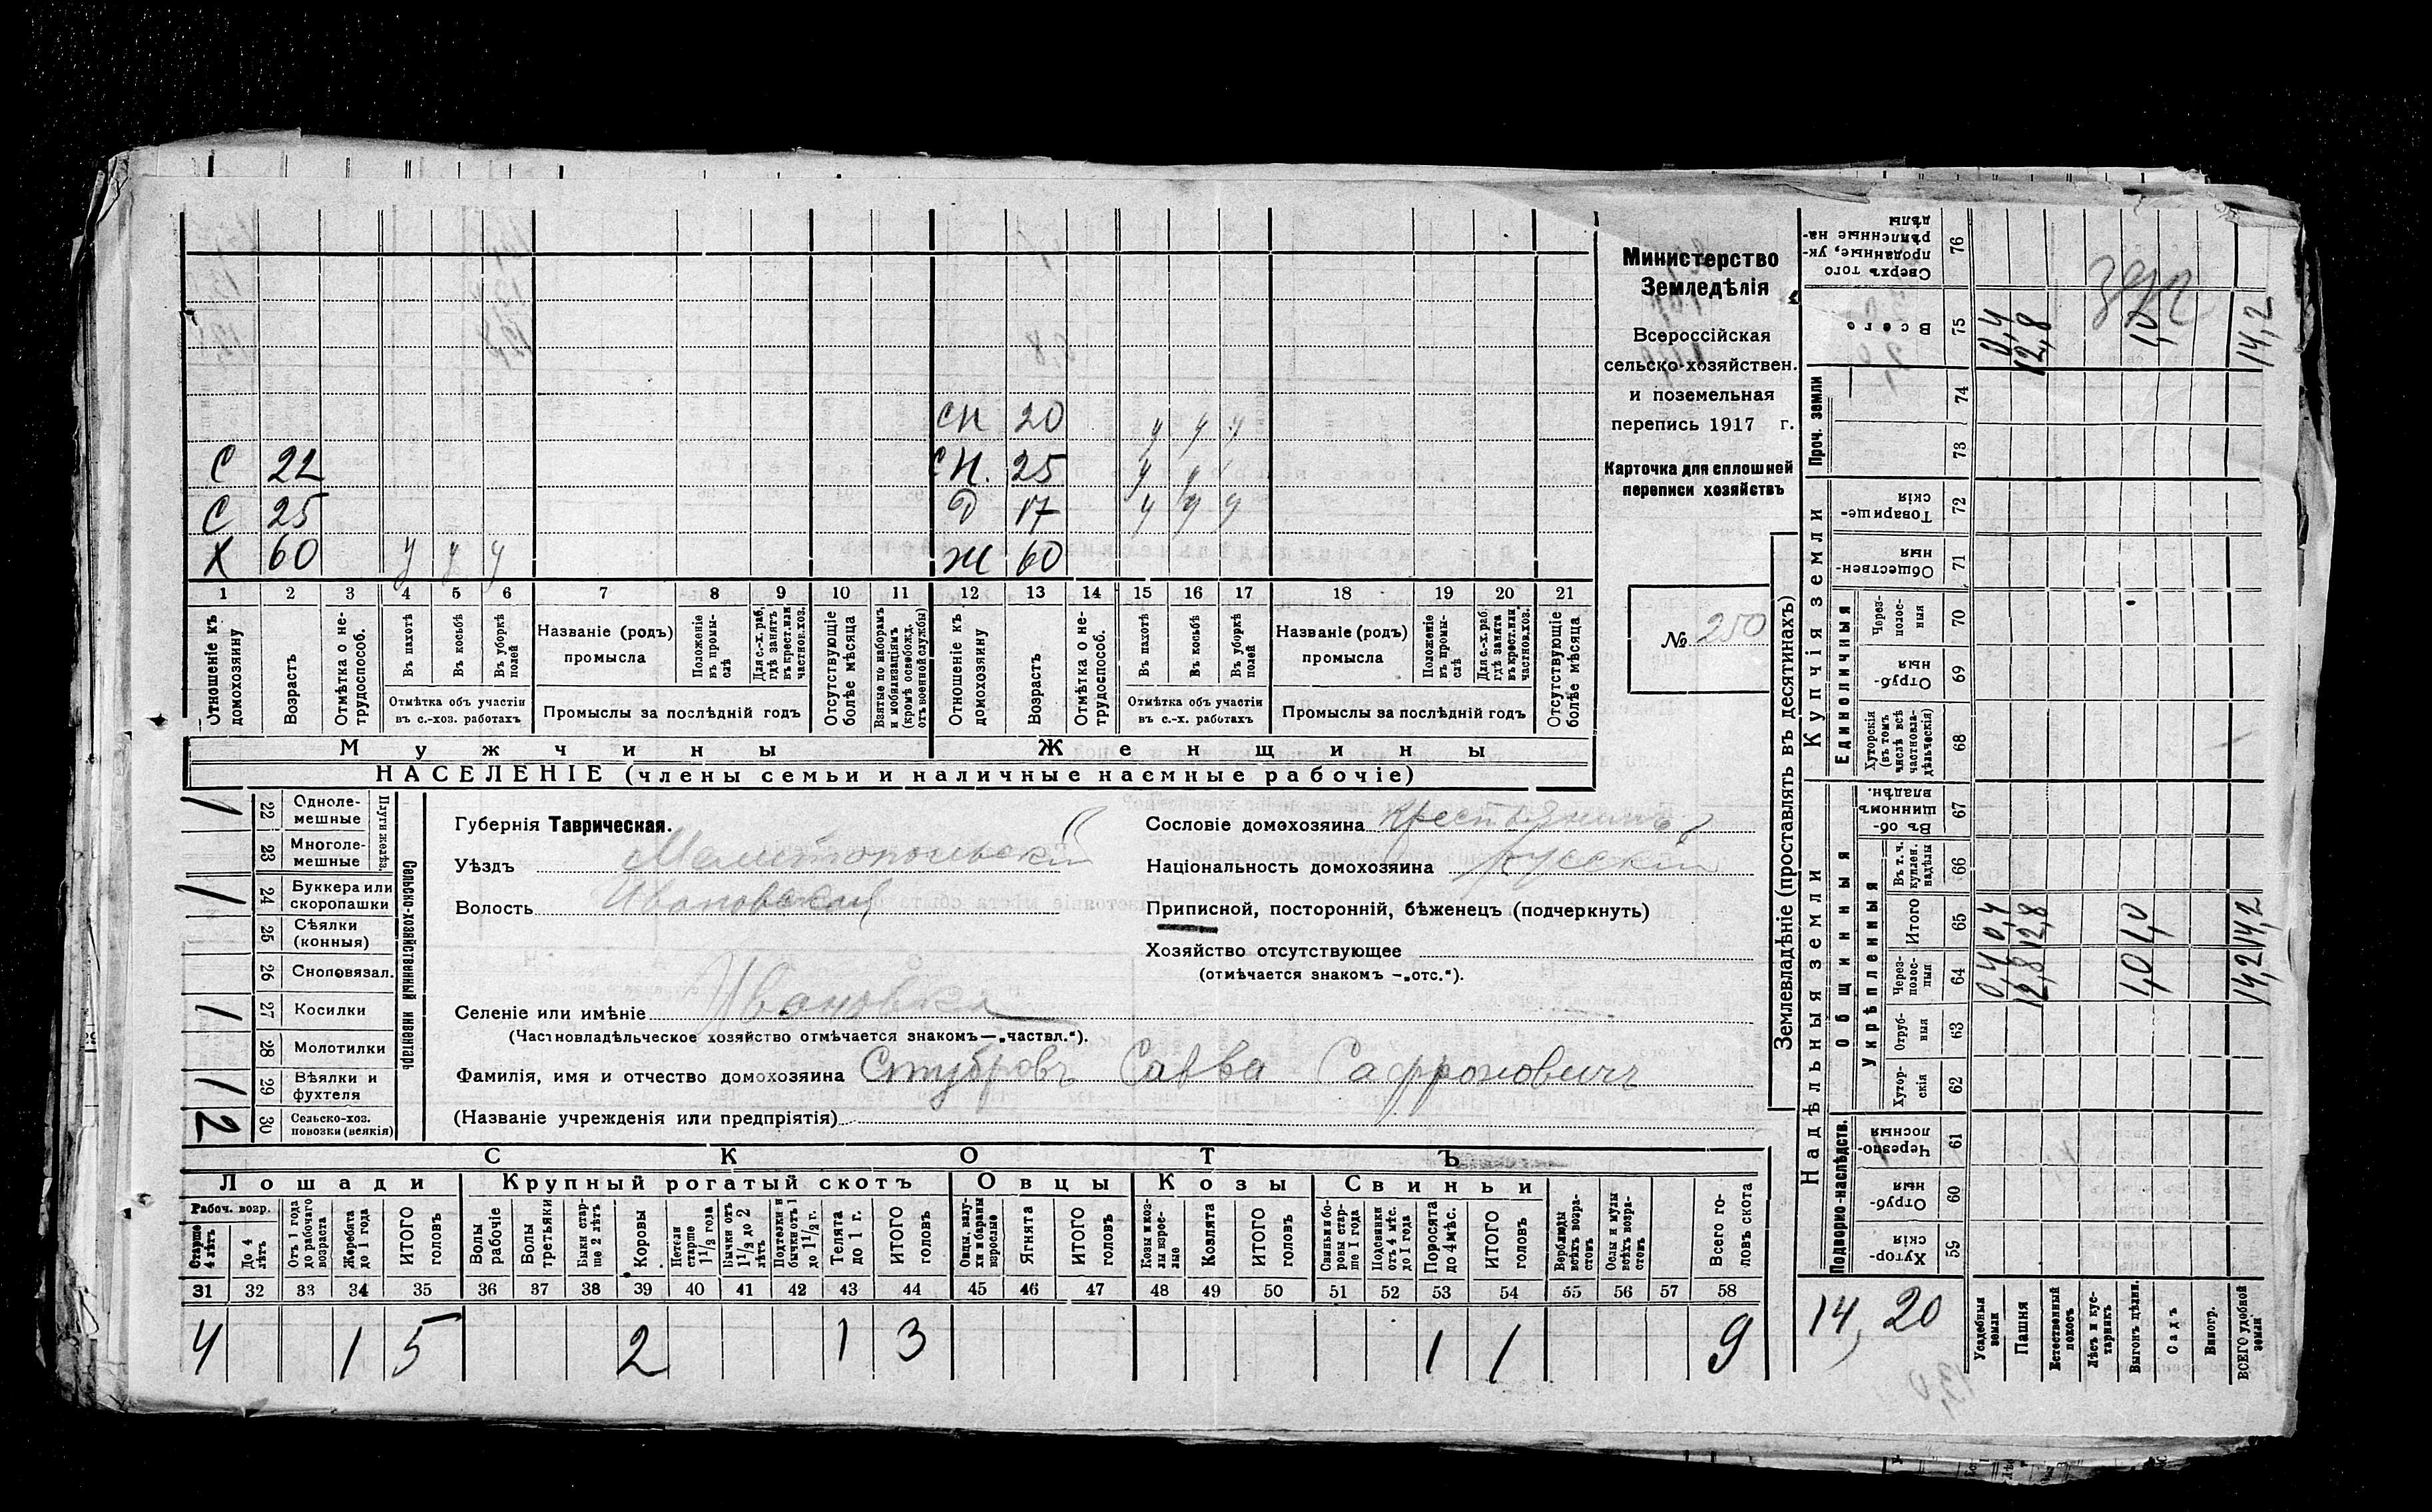 СН 20 У У У
С 22 СН. 25 У У У
С 25 Д 17 У У У
Х 60 У У У Ж 60
1 2 3 4 5 6 7 8 9 10 11 12 13 14 15 16 17 18 19 20 21
Отношеніе къ домохозяину
Возрастъ
Отмѣтка о нетрудоспособ.
Въ пахотѣ
Въ косьбѣ
Въ уборкѣ полей
Отмѣтка объ участіи
въ с.-хоз. работахъ
Названіе (родъ)
промысла
Положеніе въ промыслѣ
Для с.-х. раб. гдѣ занятъ въ крест. или частнов. хоз.
Промыслы за послѣдній годъ
Отсутствующіе болѣе мѣсяца
Взятые по наборамъ и мобилизаціямъ (кромѣ освобожд. отъ военной службы)
Отношеніе къ домохозяину
Возрастъ
Отмѣтка о нетрудоспособ.
Въ пахотѣ
Въ косьбѣ
Въ уборкѣ полей
Отмѣтка объ участіи
въ с.-х. работахъ
Названіе (родъ)
промысла
Положеніе въ промыслѣ
Для с.-х. раб. гдѣ занята въ крест. или частнов. хоз.
Промыслы за послѣдній годъ
Отсутствующіе болѣе мѣсяца
Мужчины Женщины
НАСЕЛЕНІЕ (члены семьи и наличные наемные рабочіе)
Министерство
Земледѣлія
Всероссійская
сельско-хозяйствен.
и поземельная
перепись 1917 г.
Карточка для сплошной
переписи хозяйствъ
№ 250
Сельско-хозяйственный инвентарь
Плуги желѣз.
1 22 Однолемешные
23 Многолемешные
1 24 Буккера или скоропашки
25 Сѣялки (конныя)
26 Сноповязал.
1 27 Косилки
28 Молотилки
1 29 Вѣялки и фухтеля
2 30 Сельско-хоз. повозки (всякія)
Губернія Таврическая.
Уѣздъ Мелитопольскій
Волость Ивановская
Селеніе или имѣніе Ивановка
(Частновладѣльческое хозяйство отмѣчается знакомъ—„частвл.“).
Сословіе домохозяина Крестьянинъ
Національность домохозяина русскій
Приписной, посторонній, бѣженецъ (подчеркнуть)
Хозяйство отсутствующее
(отмѣчается знакомъ —„отс.“).
Фамилія, имя и отчество домохозяина Савва Сафроновичъ
(Названіе учрежденія или предпріятія)
СКОТЪ
Лошади Крупный рогатый скотъ Овцы Козы Свиньи
Рабоч. возр.
Старше 4 лѣтъ
До 4 лѣтъ
Отъ 1 года до рабочаго возраста
Жеребята до 1 года
ИТОГО головъ
Волы рабочіе
Волы третьяки
Быки старше 2 лѣтъ
Коровы
Нетели старше 1 1/2 года
Бычки отъ 1 1/2 до 2 лѣтъ
Подтелки и бычки отъ 1 до 1 1/2 г.
Телята до 1 г.
ИТОГО головъ
Овцы, валухи и бараны взрослые
Ягнята
ИТОГО головъ
Козы и козлы взрослые
Козлята
ИТОГО головъ
Свиньи и боровы старше 1 года
Подсвинки отъ 4 мѣс. до 1 года
Поросята до 4 мѣс.
ИТОГО головъ
Верблюды всѣхъ возрастовъ
Ослы и мулы всѣхъ возрастовъ
Всего головъ скота
31 32 33 34 35 36 37 38 39 40 41 42 43 44 45 46 47 48 49 50 51 52 53 54 55 56 57 58
4 1 5 2 1 3 1 1 9
Землевладѣніе (проставлять въ десятинахъ)
Надѣльныя земли
Купчія земли
Проч. земли
Подворно-наслѣдств.
Общинныя
Укрѣпленныя
Единоличныя
Хуторскія 59
Отрубныя 60
Черезполосныя 61
Хуторскія 62
Отрубныя 63
Черезполосныя 64 0,4 12,8 1,0 14,2
Итого 65 0,4 12,8 1,0 14,2
Въ т. ч. куплен. надѣлы 66
Въ общинномъ владѣн. 67
Хуторскія (въ томъ числѣ всѣ частновладѣльческія) 68
Отрубныя 69
Черезполосныя 70
Общественныя 71
Товарищескія 72
73
74
Всего 75 0,4 12,8 1,0 14,2
Сверхъ того проданные, укрѣпленные надѣлы 76
14,20
Усадебныя земли
Пашня
Естественный покосъ
Лѣсъ и кустарникъ
Выгонъ цѣлин.
Садъ
Виногр.
ВСЕГО удобной земли